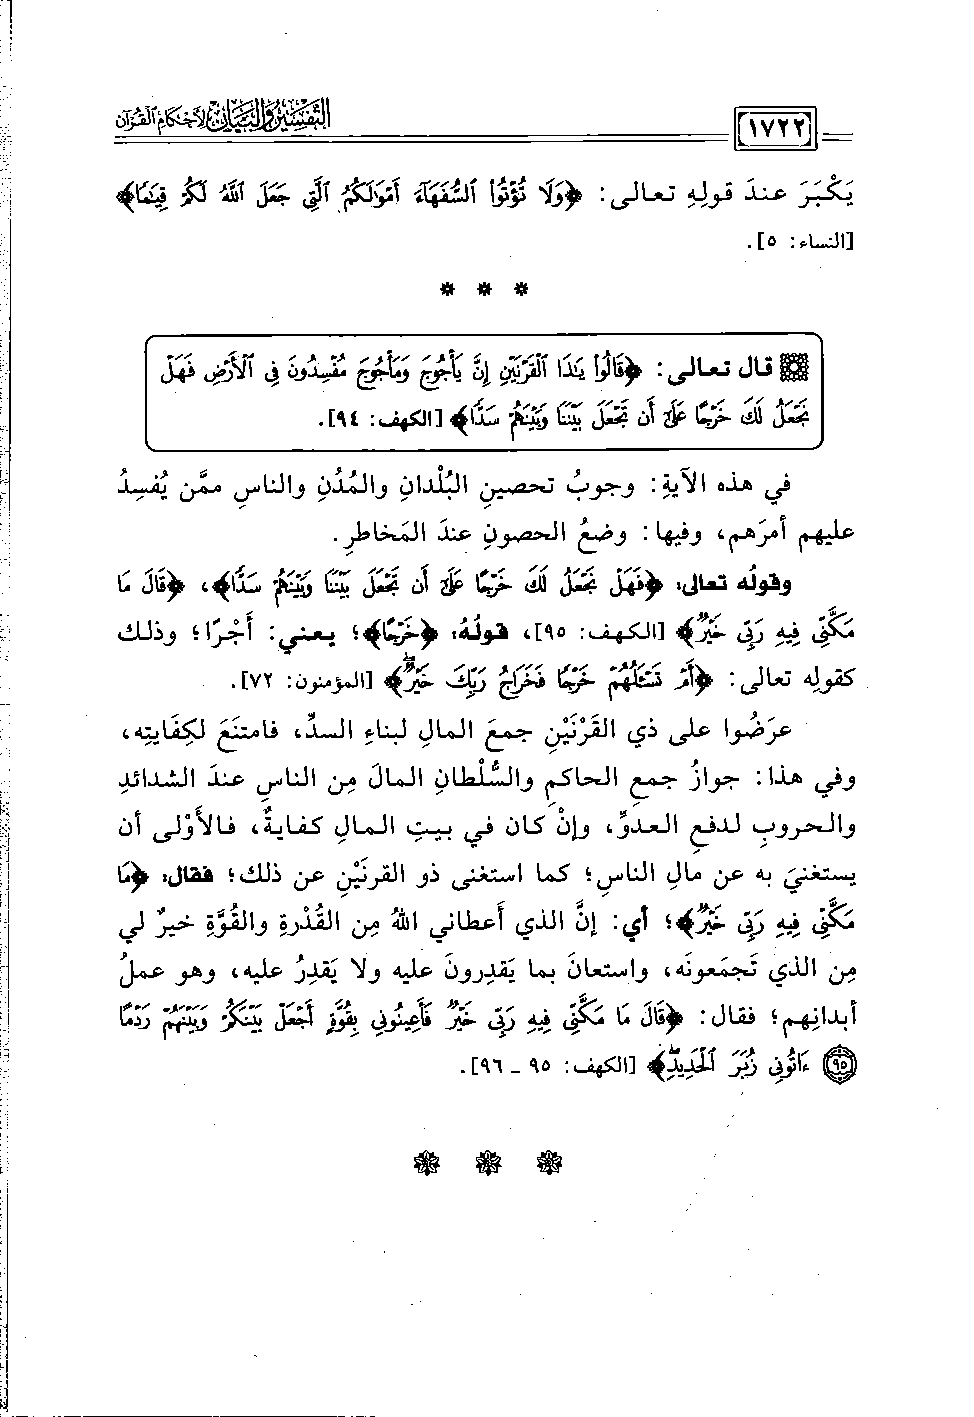 ١٧٢٢
التفسير والبيان لأحكام القرآن
يَكْبَرَ عندَ قولِهِ تعالى: ﴿وَلَا تُؤْتُوا۟ ٱلسُّفَهَآءَ أَمْوَٰلَكُمُ ٱلَّتِى جَعَلَ ٱللَّهُ لَكُمْ قِيَٰمًا﴾
[النساء: ٥].
* * *
قال تعالى: ﴿قَالُوا۟ يَٰذَا ٱلْقَرْنَيْنِ إِنَّ يَأْجُوجَ وَمَأْجُوجَ مُفْسِدُونَ فِى ٱلْأَرْضِ فَهَلْ
نَجْعَلُ لَكَ خَرْجًا عَلَىٰٓ أَن تَجْعَلَ بَيْنَنَا وَبَيْنَهُمْ سَدًّا﴾ [الكهف: ٩٤].
في هذه الآيةِ: وجوبُ تحصينِ البُلْدانِ والمُدُنِ والناسِ ممَّن يُفسِدُ
عليهم أمرَهم، وفيها: وضعُ الحصونِ عندَ المَخاطرِ.
وقولُه تعالى: ﴿فَهَلْ نَجْعَلُ لَكَ خَرْجًا عَلَىٰٓ أَن تَجْعَلَ بَيْنَنَا وَبَيْنَهُمْ سَدًّا﴾، ﴿قَالَ مَا
مَكَّنِّى فِيهِ رَبِّى خَيْرٌ﴾ [الكهف: ٩٥]، قولُهُ: ﴿خَرْجًا﴾؛ يعني: أَجْرًا؛ وذلك
كقولِه تعالى: ﴿أَمْ تَسْـَٔلُهُمْ خَرْجًا فَخَرَاجُ رَبِّكَ خَيْرٌ﴾ [المؤمنون: ٧٢].
عرَضُوا على ذي القَرْنَيْنِ جمعَ المالِ لبناءِ السدِّ، فامتنَعَ لكِفَايتِه،
وفي هذا: جوازُ جمعِ الحاكمِ والسُّلْطانِ المالَ مِن الناسِ عندَ الشدائدِ
والحروبِ لدفعِ العدوِّ، وإنْ كان في بيتِ المالِ كفايةٌ، فالأَوْلى أن
يستغنيَ به عن مالِ الناسِ؛ كما استغنى ذو القرنَيْنِ عن ذلك؛ فقال: ﴿مَا
مَكَّنِّى فِيهِ رَبِّى خَيْرٌ﴾؛ أي: إنَّ الذي أعطاني اللهُ مِن القُدْرةِ والقُوَّةِ خيرٌ لي
مِن الذي تَجمَعونَه، واستعانَ بما يَقدِرونَ عليه ولا يَقدِرُ عليه، وهو عملُ
أبدانِهم؛ فقال: ﴿قَالَ مَا مَكَّنِّى فِيهِ رَبِّى خَيْرٌ فَأَعِينُونِى بِقُوَّةٍ أَجْعَلْ بَيْنَكُمْ وَبَيْنَهُمْ رَدْمًا
٩٥ ءَاتُونِى زُبَرَ ٱلْحَدِيدِ﴾ [الكهف: ٩٥ - ٩٦].
* * *